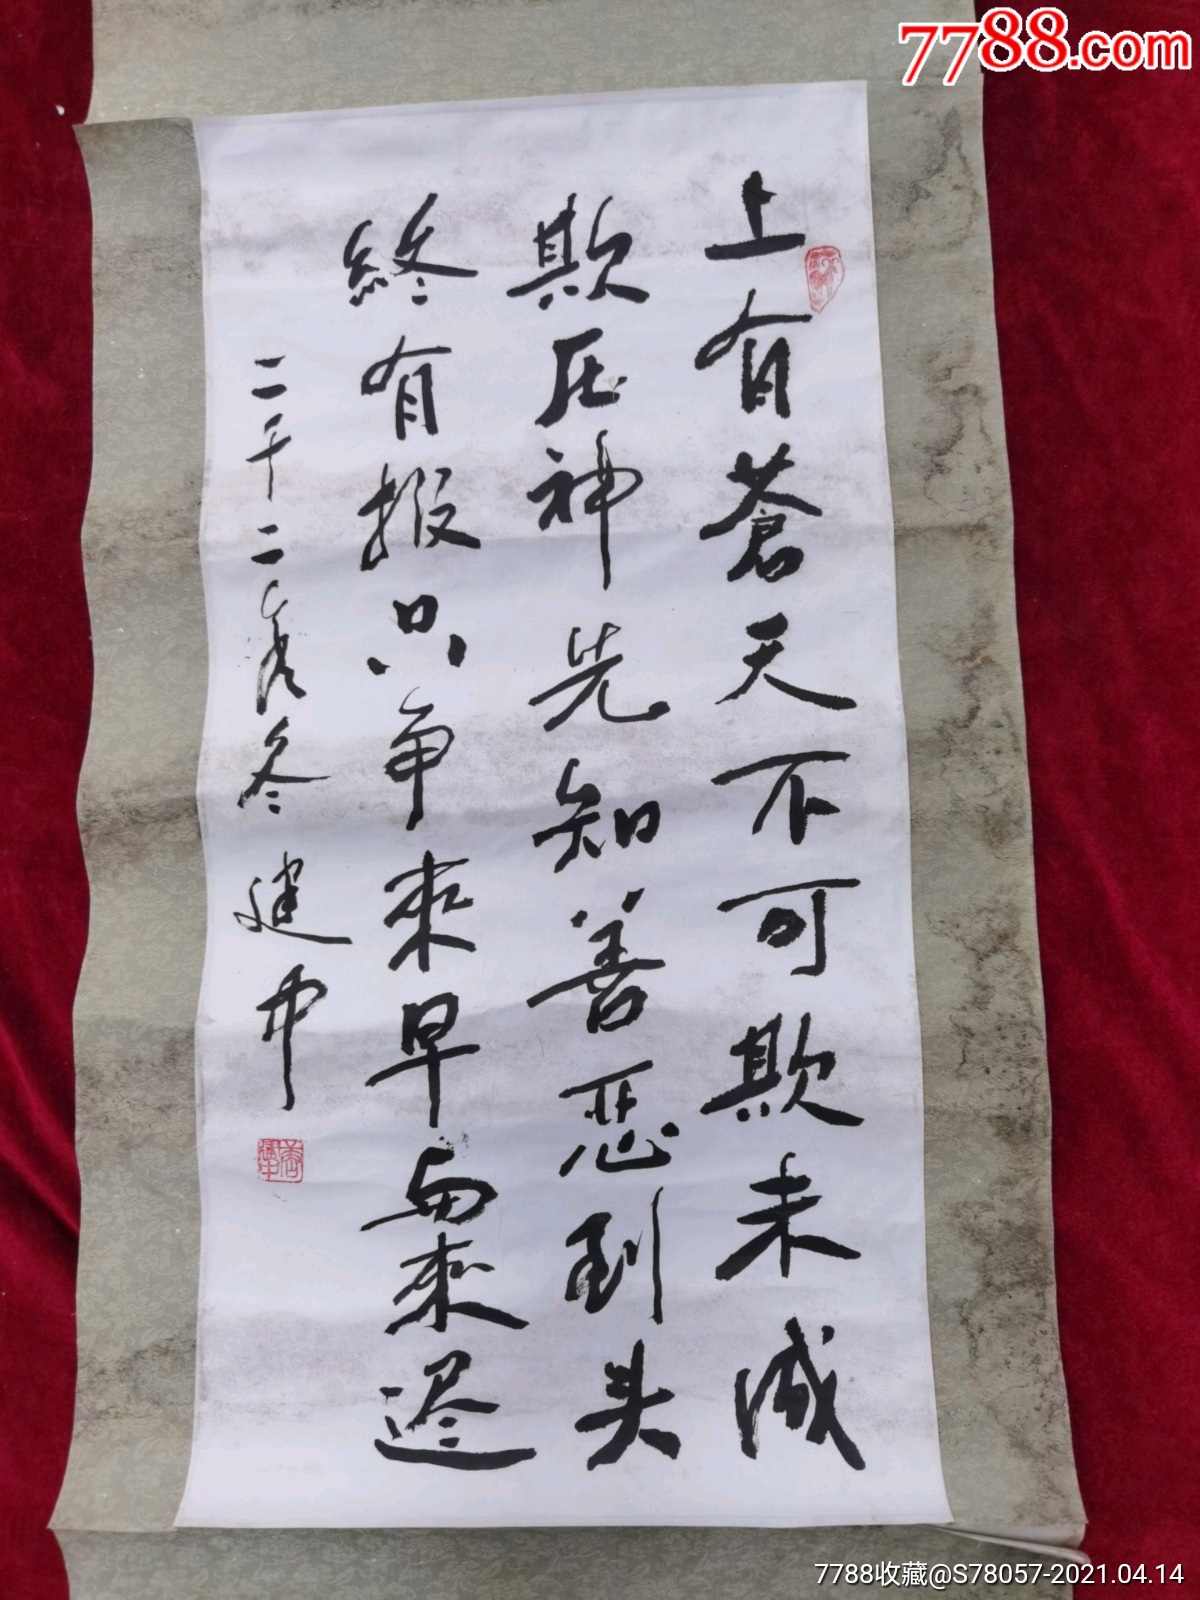 7788.com
上有蒼天不可欺未減
欺压神先知善恶到头
終有报只争來早与來迟
二千二冬 建
7788收藏@S78057-2021.04.14